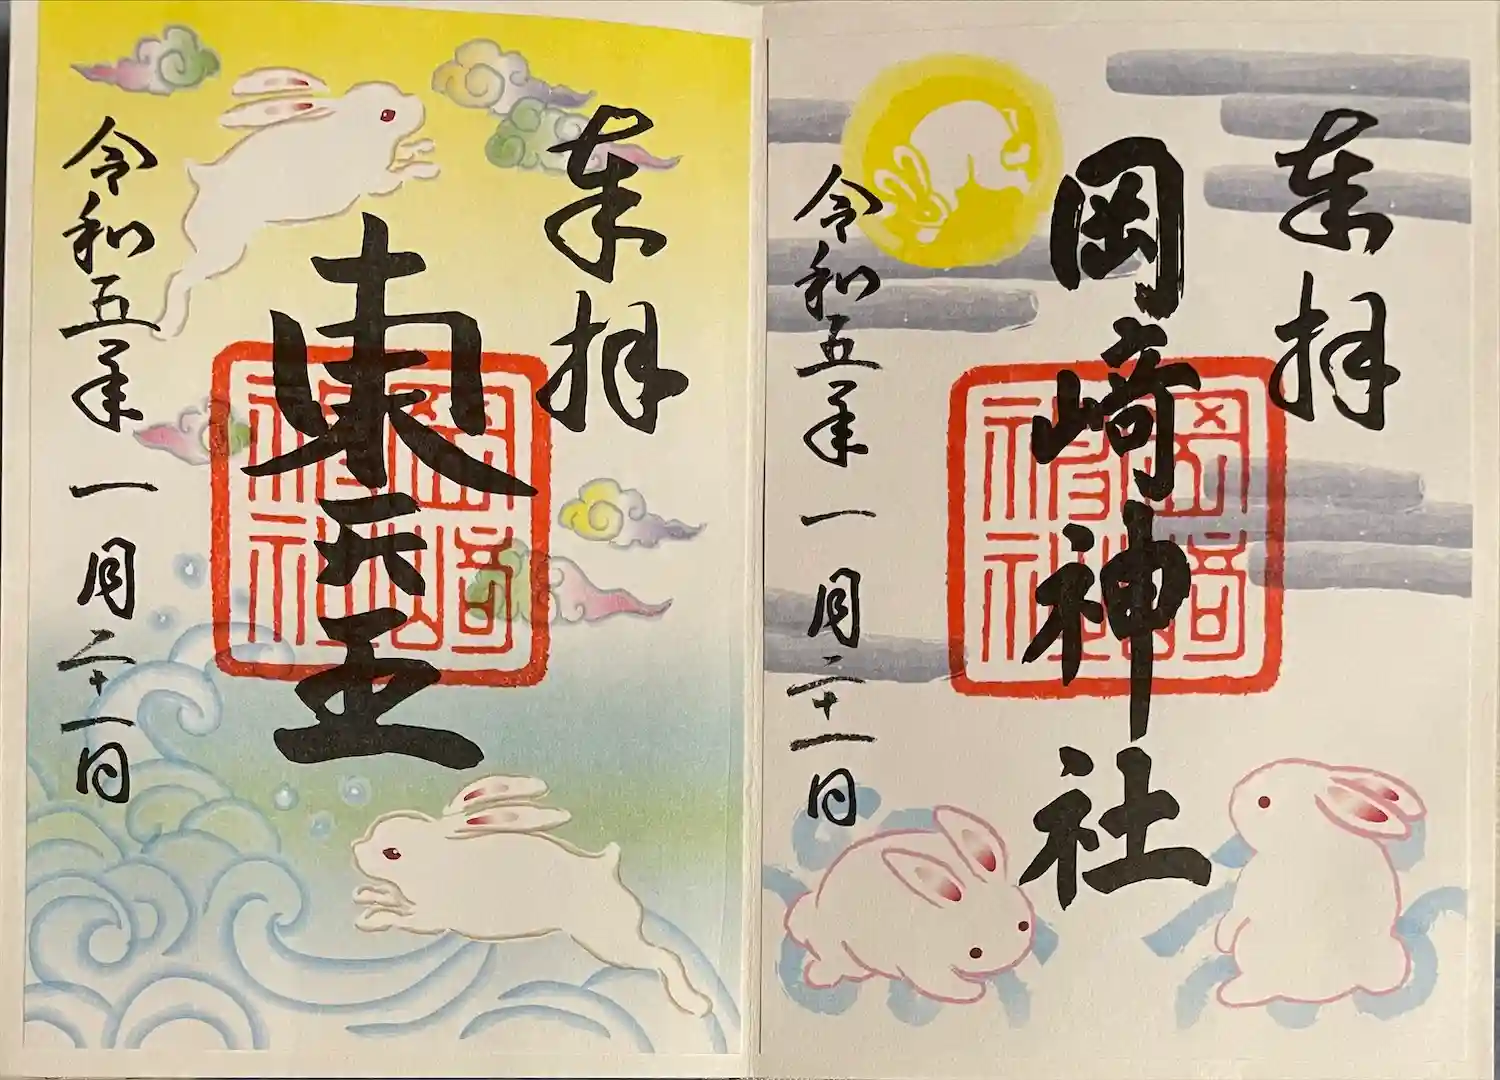 奉拝
岡崎神社
岡崎神社
令和五年一月二十一日
奉拝
東天王
岡崎神社
令和五年一月二十一日